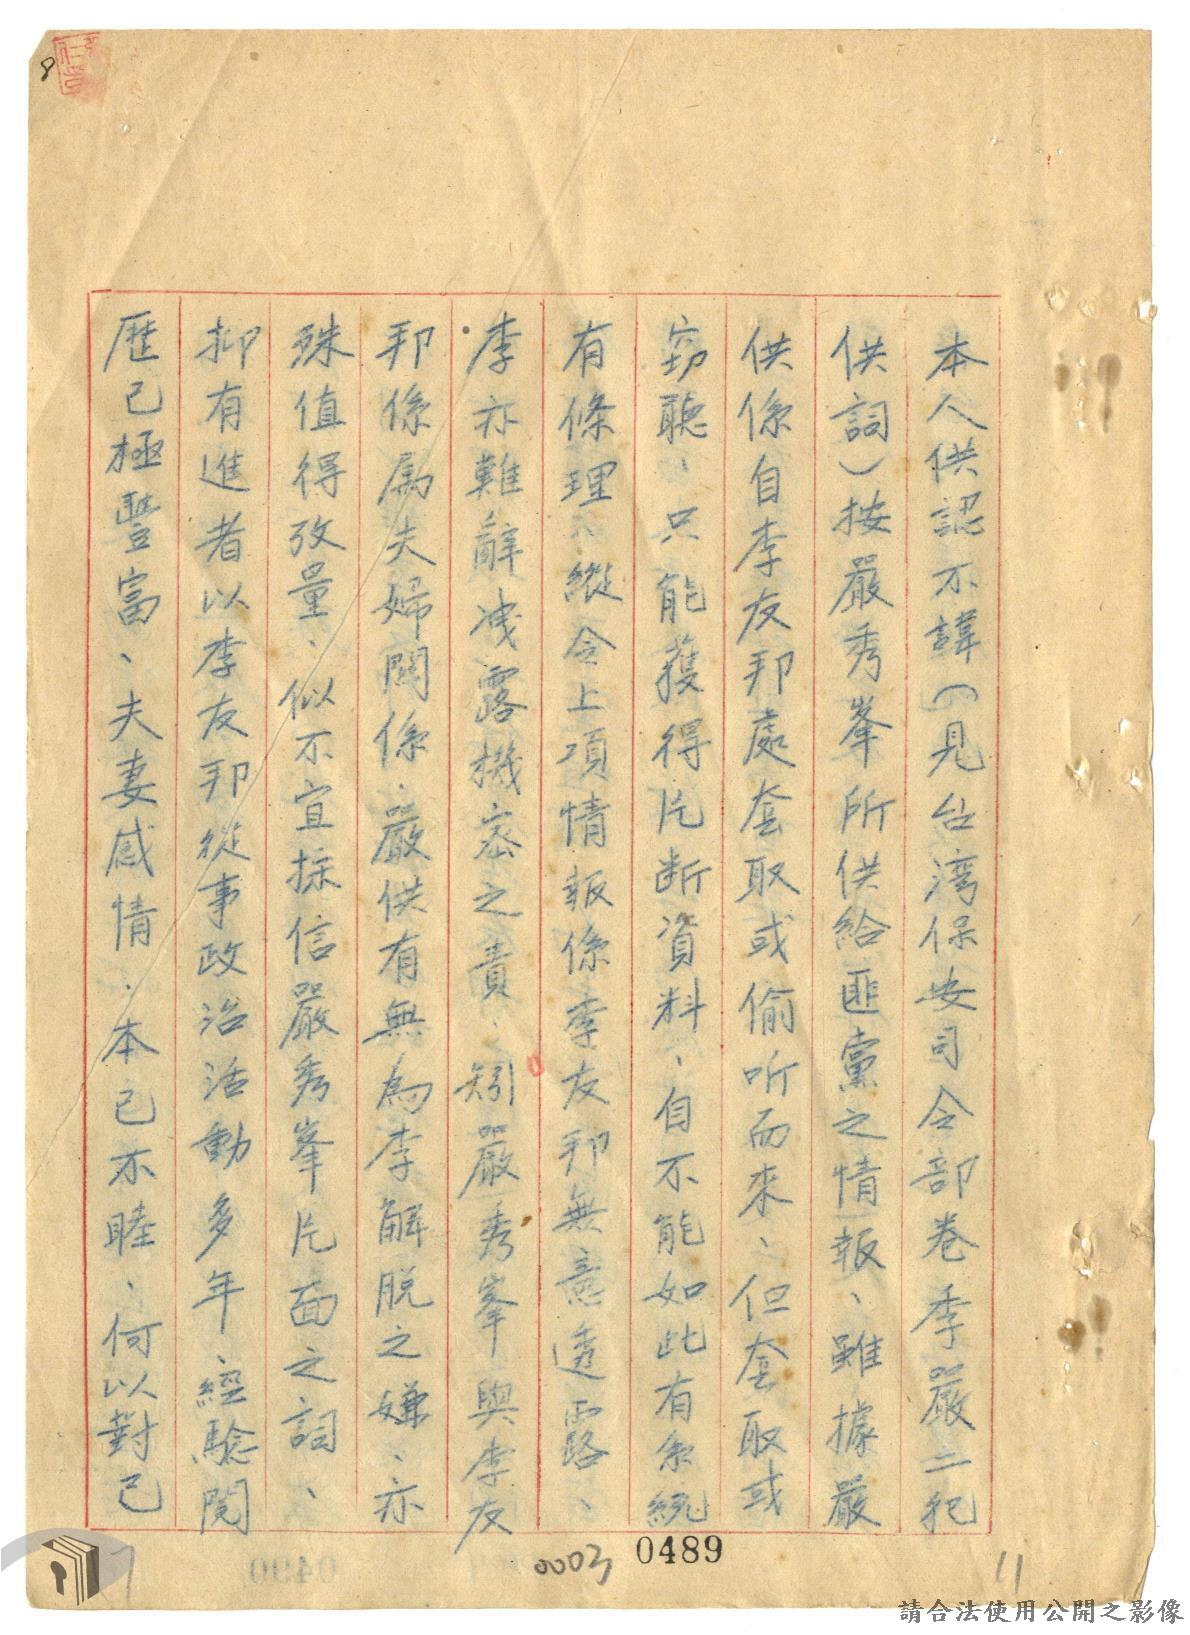 8
本人供認不諱（見台湾保安司令部卷李嚴二犯
供詞）按嚴秀峯所供給匪黨之情報、雖據嚴
供係自李友邦處套取或偷听而來、但套取或
窃聽、只能獲得片断資料、自不能如此有系統
有條理、縱令上項情報係李友邦無意透露、
李亦難辭洩露機密之責、矧嚴秀峯與李友
邦係屬夫婦関係、嚴供有無為李解脱之嫌、亦
殊值得攷量、似不宜採信嚴秀峯片面之詞、
抑有進者以李友邦從事政治活動多年、經驗閱
歷已極豐富、夫妻感情、本已不睦、何以對己
11
0003
0489
0490
請合法使用公開之影像